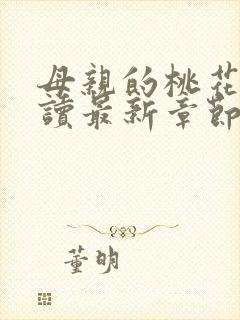 母親的桃花
讀最新章節
董明